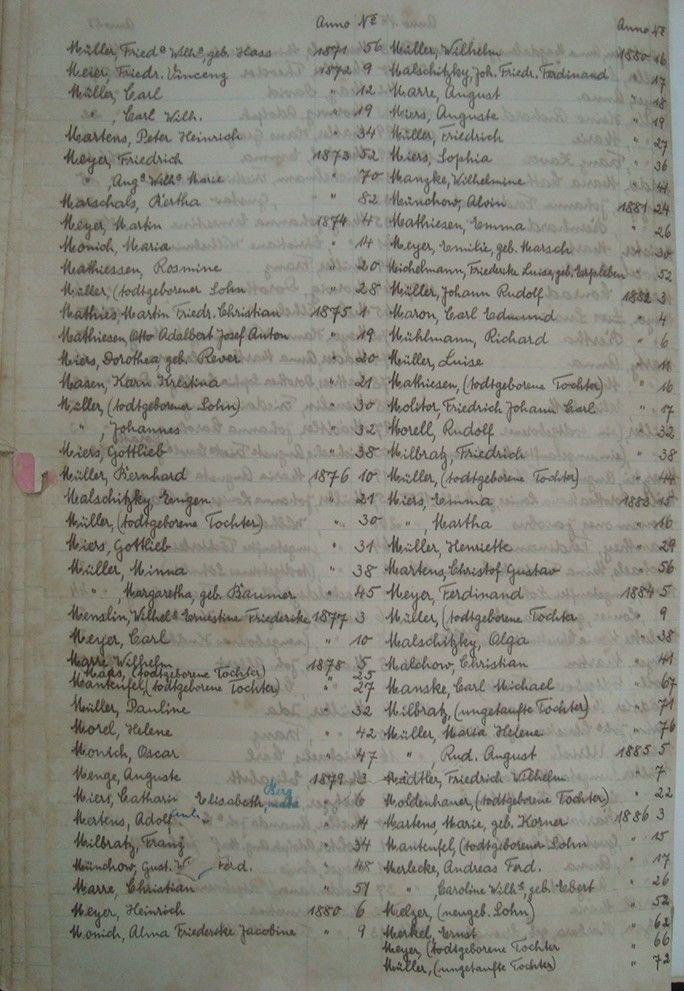 Anno Nº
Müller, Fried.ᵉ Wilh.ᵉ, geb. Hass 1871 56
Meier, Friedr. Vinceng 1872 9
Müller, Carl " 12
" , Carl Wilh. " 19
Martens, Peter Heinrich " 34
Meyer, Friedrich 1873 52
" , Aug.ᵉ Wilh.ᵉ Marie " 70
Marschals, Bertha " 82
Meyer, Martin 1874 4
Monich, Maria " 14
Mathiessen, Rosmine " 20
Müller, (todtgeborener Sohn " 28
Mathies, Martin Friedr. Christian 1875 1
Mathiesen, Otto Adalbert Josef Anton " 19
Miers, Dorothea, geb. Rever " 20
Masen, Karin Krestina " 21
Müller (todtgeborener Sohn) " 30
" , Johannes " 32
Miers, Gottlieb " 38
Müller, Bernhard 1876 10
Malschitzky, Eugen " 21
Müller, (todtgeborene Tochter) " 30
Miers, Gottlieb " 31
Müller, Minna " 38
" , Margaretha, geb. Baumer " 45
Menslin, Wilhel.ᵉ Ernestine Friedericke 1877 3
Meyer, Carl " 10
Marre, Wilhelm 1878 5
Maas, (todtgeborene Tochter) " 25
Manteufel, (todtgeborene Tochter) " 27
Müller, Pauline " 32
Morel, Helene " 42
Monich, Oscar " 47
Menge, Auguste 1879 3
Miers, Catharin Elisabeth, " 6
Mertens, Adolf " 14
Milbratz, Franz " 34
Münchow, Gust. W. Ferd. " 48
Marre, Christian " 51
Meyer, Heinrich 1880 6
Monich, Alma Friederike Jacobine " 9
Anno Nº
Müller, Wilhelm 1880 16
Malschitzky, Joh. Friedr. Ferdinand " 17
Marre, August " 18
Miers, Auguste " 19
Müller, Friedrich " 27
Miers, Sophia " 36
Manzke, Wilhelmine " 44
Münchow, Alvin 1881 24
Mathiesen, Emma " 26
Meyer, Emilie, geb. Marsch " 30
Michelmann, Friedericke Luise, geb. Erxleben " 52
Müller, Johann Rudolf 1882 3
Maron, Carl Edmund " 4
Mühlmann, Richard " 6
Müller, Luise " 11
Mathiesen, (todtgeborene Tochter) " 16
Molitor, Friedrich Johann Carl " 17
Morell, Rudolf " 32
Milbratz, Friedrich " 38
Müller, (todtgeborene Tochter) " 44
Miers, Emma 1883 15
" , Martha " 16
Müller, Henriette " 29
Martens, Christof Gustav " 56
Meyer, Ferdinand 1884 5
Müller, (todtgeborene Tochter " 9
Malschitzky, Olga " 38
Malchow, Christian " 41
Manske, Carl Michael " 67
Milbratz, (ungetaufte Tochter) " 71
Müller, Maria Helene " 76
" , Rud. August 1885 5
Mädtler, Friedrich Wilhelm " 7
Moldenhauer, (todtgeborene Tochter) " 22
Martens Marie, geb. Körner 1886 3
Manteufel, (todtgeborener Sohn " 15
Merlecke, Andreas Ferd. " 17
" , Caroline Wilh.ᵉ, geb. Ebert " 26
Melzer, (neugeb. Sohn) " 52
Merkel, Ernst " 62
Meyer, (todtgeborene Tochter " 66
Müller, (ungetaufte Tochter) " 72